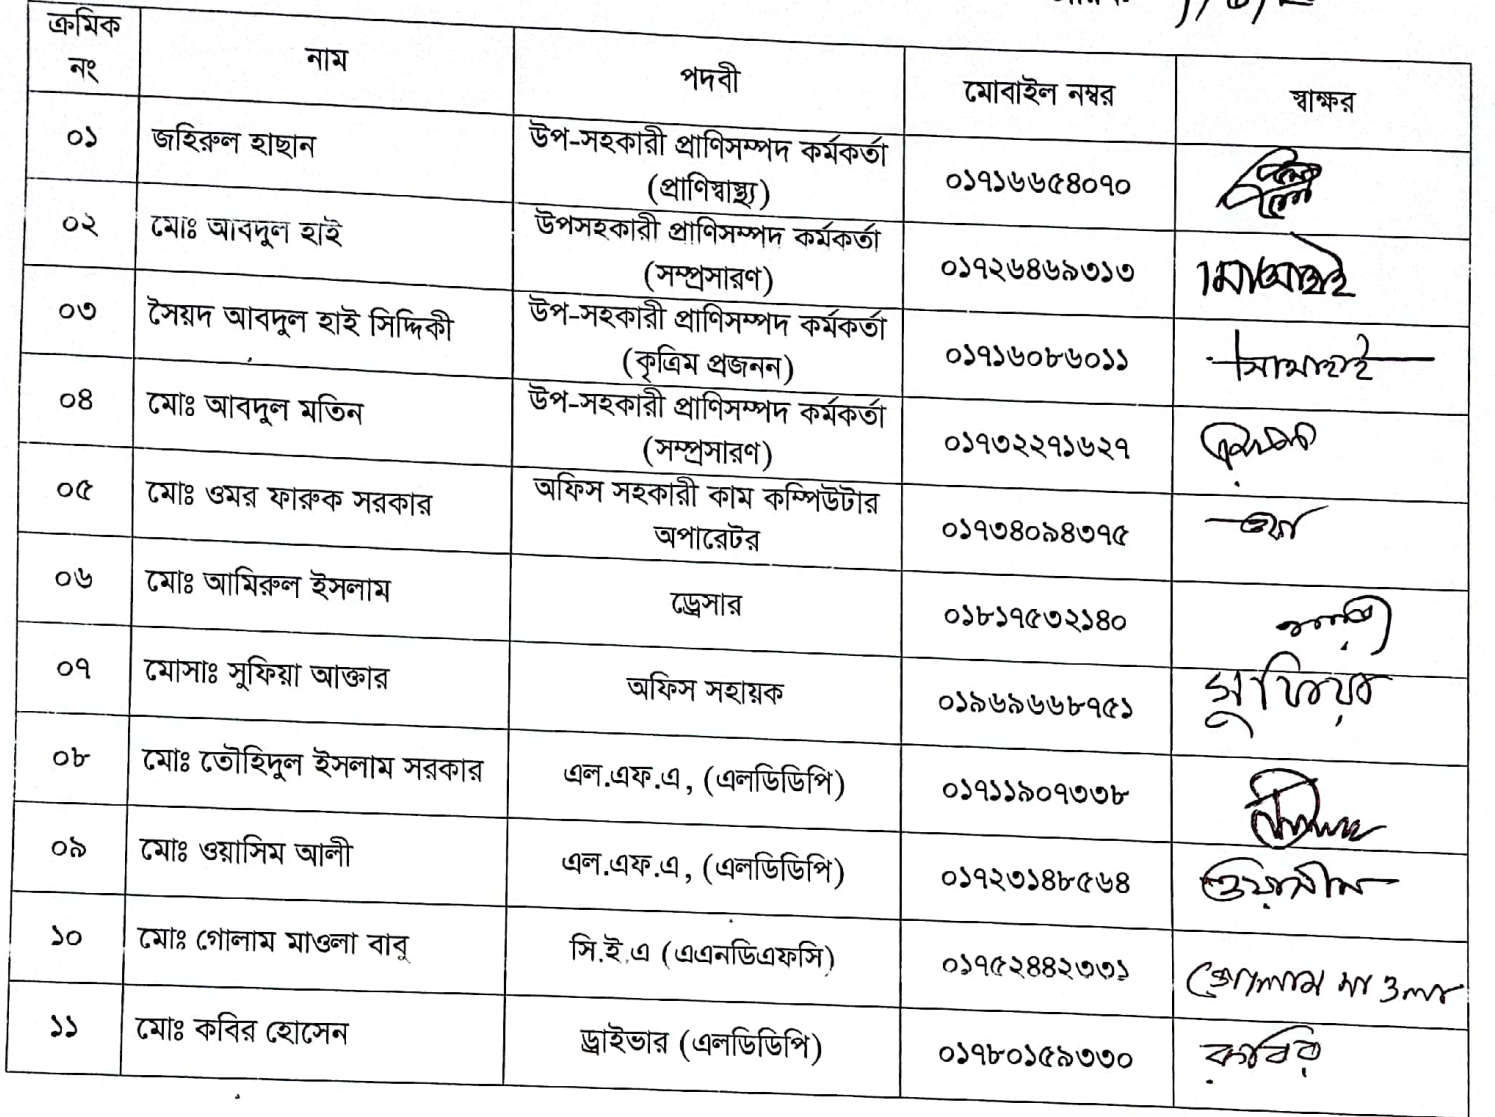 ক্রমিক নং | নাম | পদবী | মোবাইল নম্বর | স্বাক্ষর
০১ | জহিরুল হাছান | উপ-সহকারী প্রাণিসম্পদ কর্মকর্তা (প্রাণিস্বাস্থ্য) | ০১৭১৬৬৫৪০৭০
০২ | মোঃ আবদুল হাই | উপসহকারী প্রাণিসম্পদ কর্মকর্তা (সম্প্রসারণ) | ০১৭২৬৪৬৯৩১৩
০৩ | সৈয়দ আবদুল হাই সিদ্দিকী | উপ-সহকারী প্রাণিসম্পদ কর্মকর্তা (কৃত্রিম প্রজনন) | ০১৭১৬০৮৬০১১
০৪ | মোঃ আবদুল মতিন | উপ-সহকারী প্রাণিসম্পদ কর্মকর্তা (সম্প্রসারণ) | ০১৭৩২২৭১৬২৭
০৫ | মোঃ ওমর ফারুক সরকার | অফিস সহকারী কাম কম্পিউটার অপারেটর | ০১৭৩৪০৯৪৩৭৫
০৬ | মোঃ আমিরুল ইসলাম | ড্রেসার | ০১৮১৭৫৩২১৪০
০৭ | মোসাঃ সুফিয়া আক্তার | অফিস সহায়ক | ০১৯৬৯৬৬৮৭৫১ | সুফিয়া
০৮ | মোঃ তৌহিদুল ইসলাম সরকার | এল.এফ.এ, (এলডিডিপি) | ০১৭১১৯০৭৩৩৮
০৯ | মোঃ ওয়াসিম আলী | এল.এফ.এ, (এলডিডিপি) | ০১৭২৩১৪৮৫৬৪ | ওয়াসীম
১০ | মোঃ গোলাম মাওলা বাবু | সি.ই.এ (এএনডিএফসি) | ০১৭৫২৪৪২৩৩১ | গোলাম মাওলা
১১ | মোঃ কবির হোসেন | ড্রাইভার (এলডিডিপি) | ০১৭৮০১৫৯৩৩০ | কবির